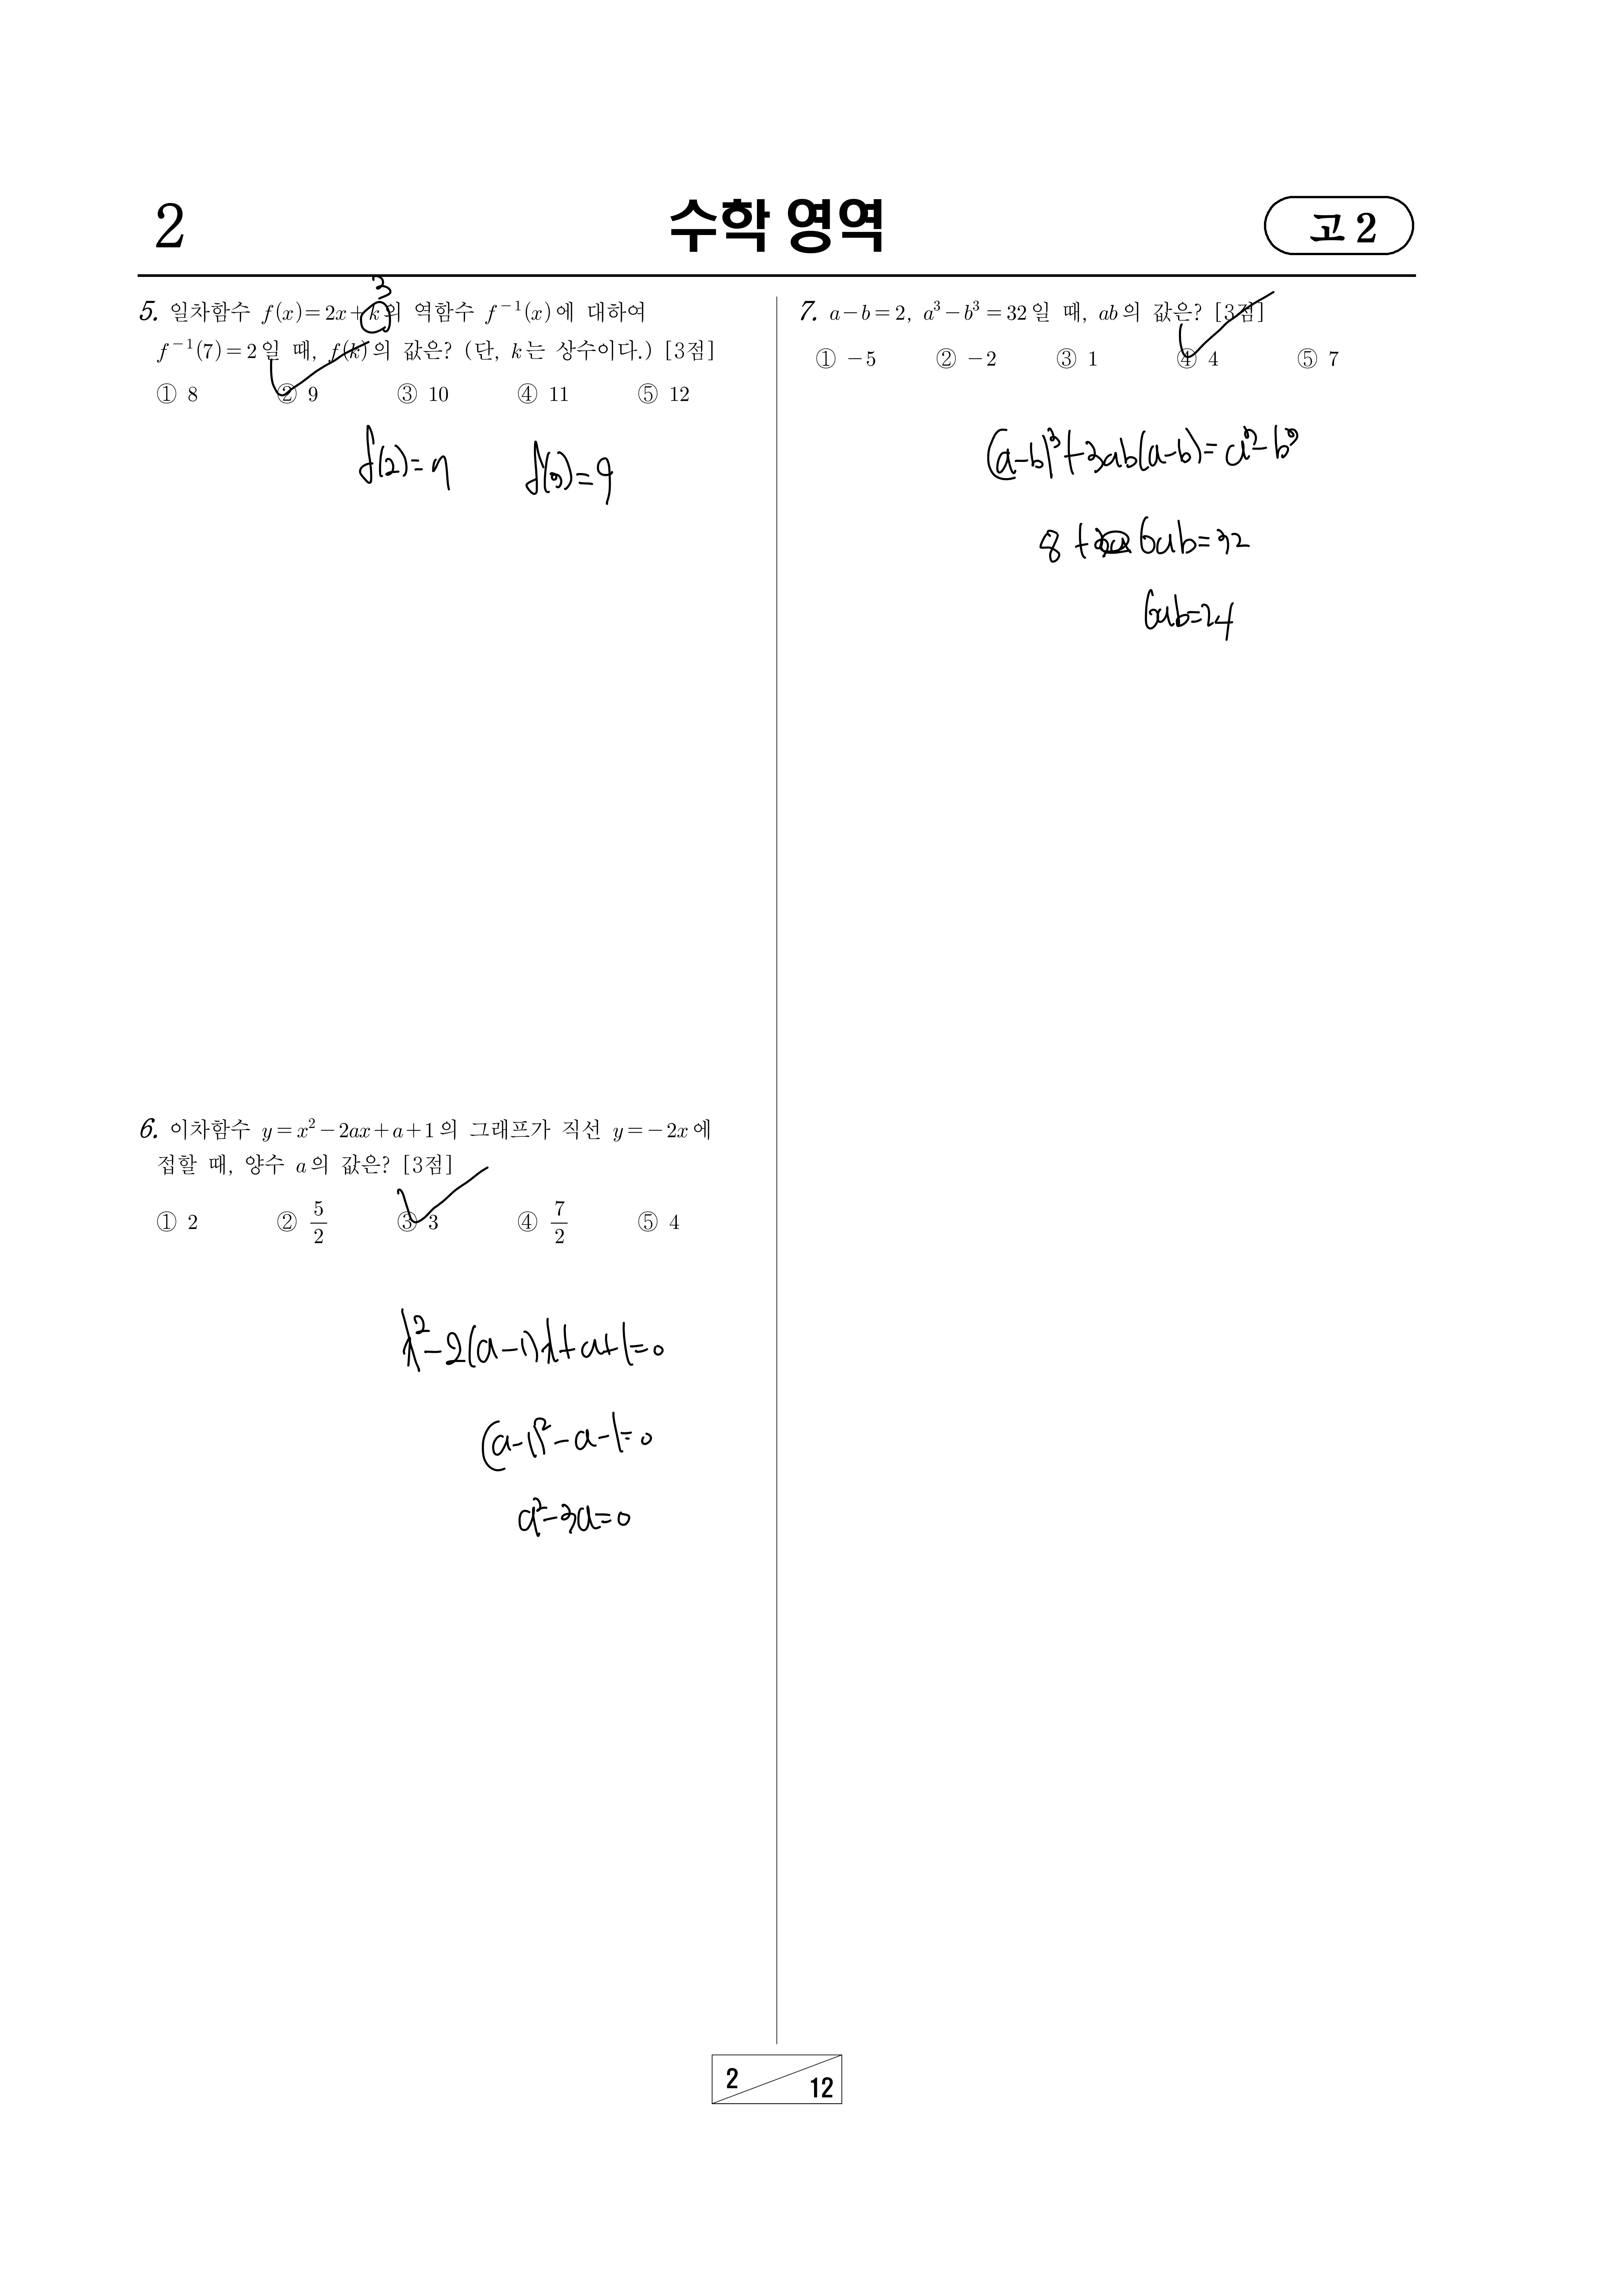 2
수학 영역
고 2
3
5. 일차함수 f(x)=2x+k의 역함수 f⁻¹(x)에 대하여
f⁻¹(7)=2일 때, f(k)의 값은? (단, k는 상수이다.) [3점]
① 8 ② 9 ③ 10 ④ 11 ⑤ 12
f(2)=7 f(3)=9
6. 이차함수 y=x²-2ax+a+1의 그래프가 직선 y=-2x에
접할 때, 양수 a의 값은? [3점]
① 2 ② 5/2 ③ 3 ④ 7/2 ⑤ 4
x²-2(a-1)x+a+1=0
(a-1)²-a-1=0
a²-3a=0
7. a-b=2, a³-b³=32일 때, ab의 값은? [3점]
① -5 ② -2 ③ 1 ④ 4 ⑤ 7
(a-b)³+3ab(a-b)=a³-b³
8+6ab=32
6ab=24
2
12